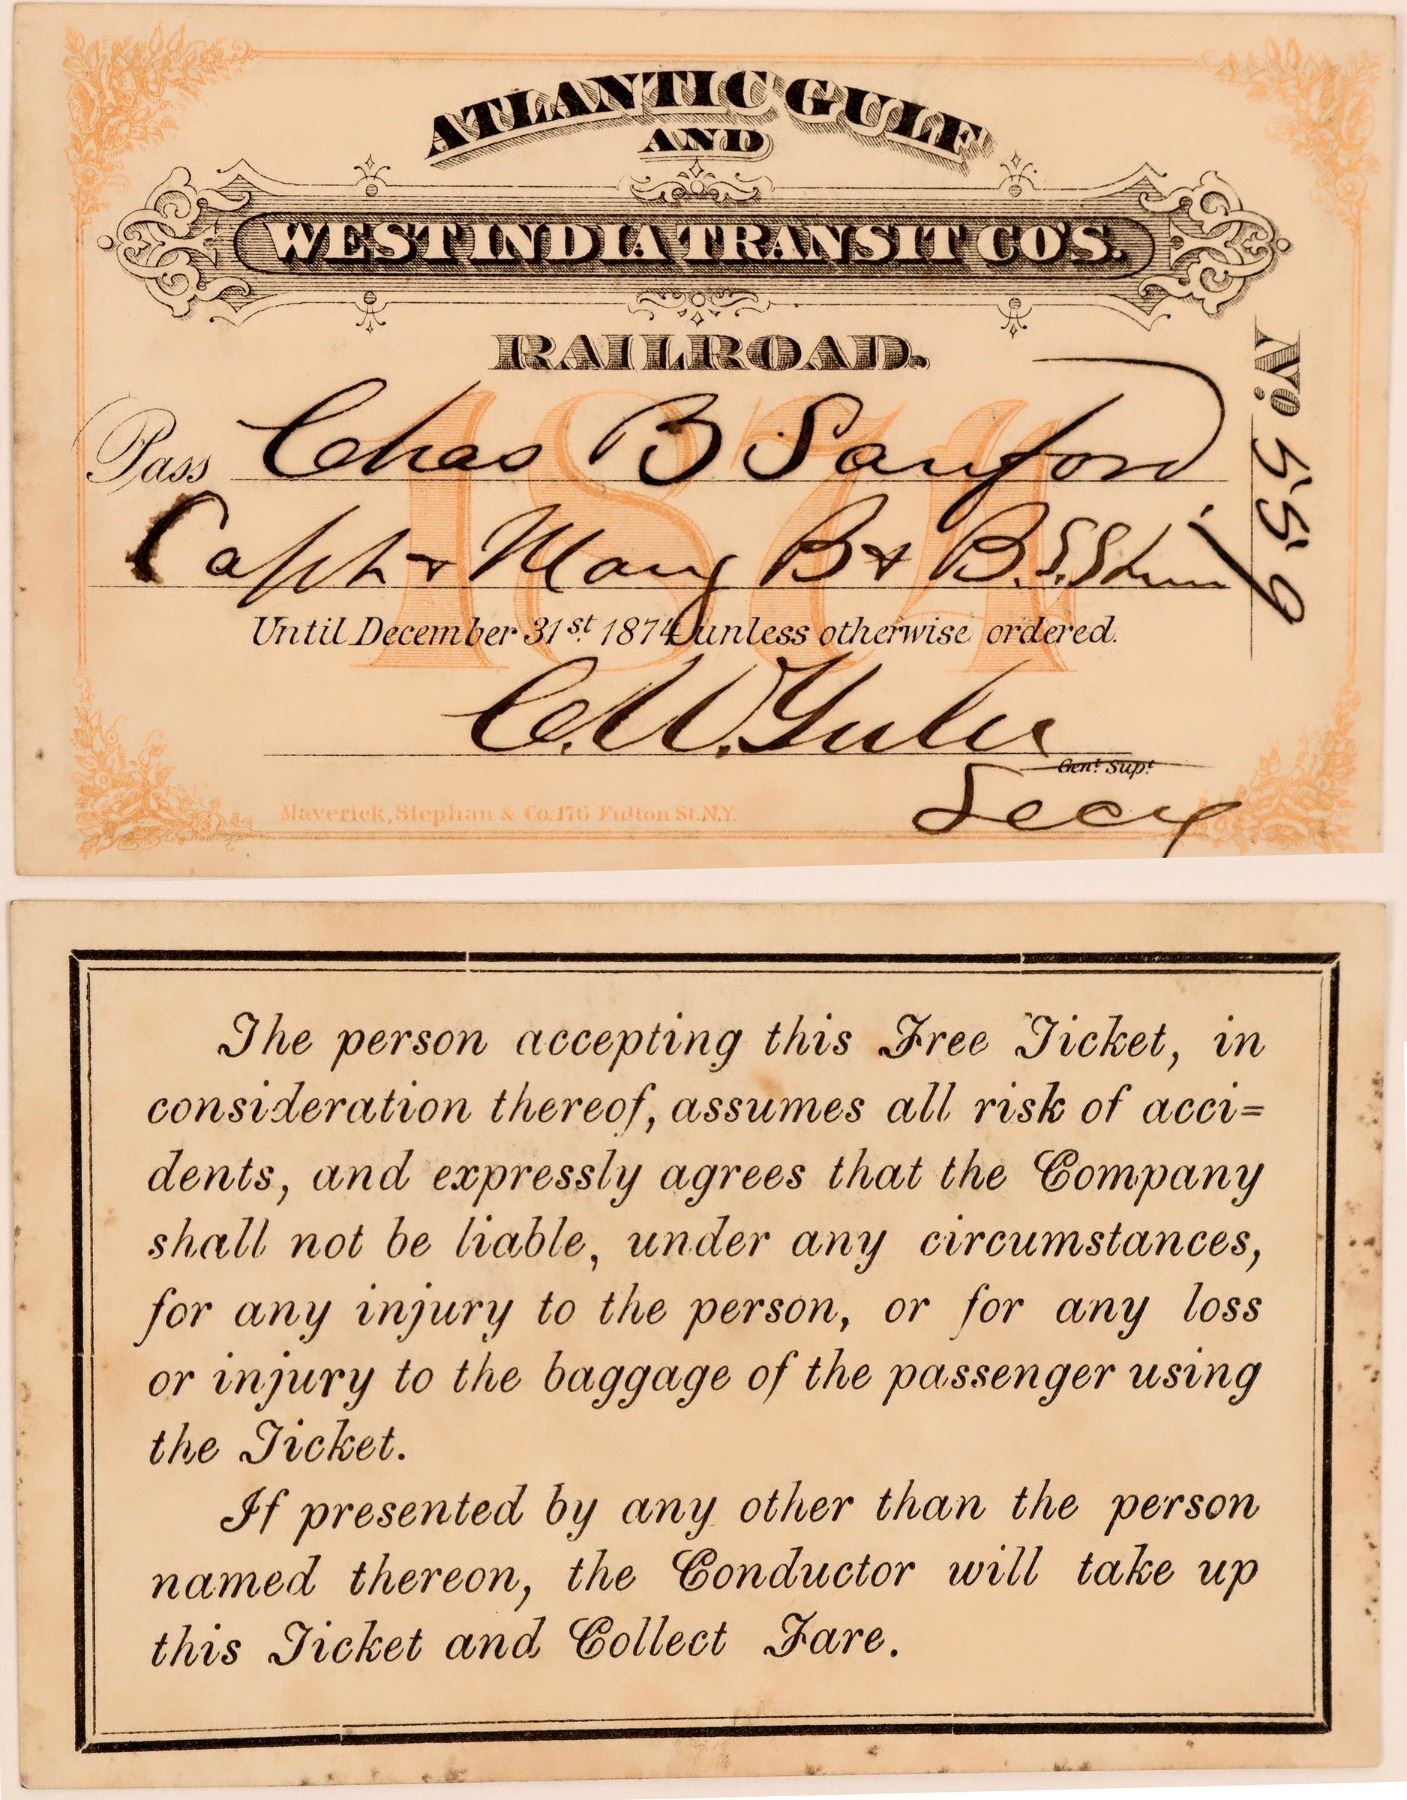 ATLANTIC GULF
AND
WEST INDIA TRANSIT CO'S.
RAILROAD.
No. 559
Pass Chas B Sanford
Capt & Mang B & B.S.S.
Until December 31st 1874 unless otherwise ordered.
C. W. Yulee
Genl Supt
Secy
Maverick, Stephan & Co. 176 Fulton St. N.Y.
1874
The person accepting this Free Ticket, in
consideration thereof, assumes all risk of acci=
dents, and expressly agrees that the Company
shall not be liable, under any circumstances,
for any injury to the person, or for any loss
or injury to the baggage of the passenger using
the Ticket.
If presented by any other than the person
named thereon, the Conductor will take up
this Ticket and Collect Fare.